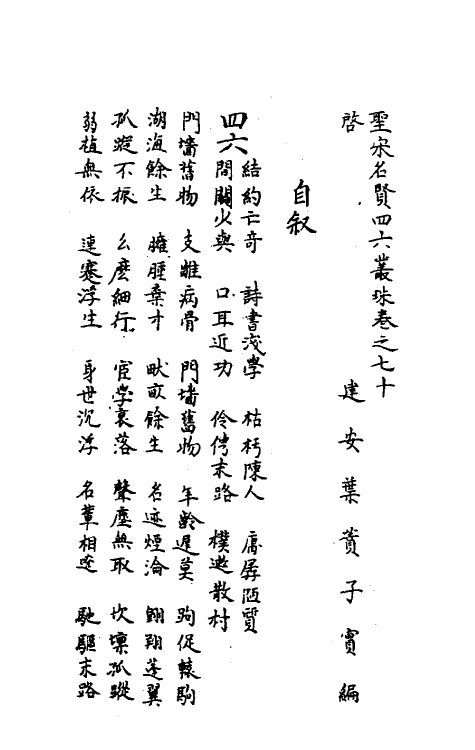 聖宋名賢四六叢珠卷之七十
建安葉蕡子實編
啓
自叙
四六
結約亡奇　詩書淺學　枯朽陳人　孱孱陋質
間關少與　口耳近功　伶俜末路　樸遬散材
門墻舊物　支離病骨　門墻舊物　年齡遲莫　跼促轅駒
湖海餘生　擁腫棄才　畎畝餘生　名迹煙淪　翺翔蓬翼
孤蹤不振　幺麽細行　宦學衰落　聲塵無取　坎壈孤蹤
弱植無依　連蹇浮生　身世沉浮　名輩相遼　馳驅末路